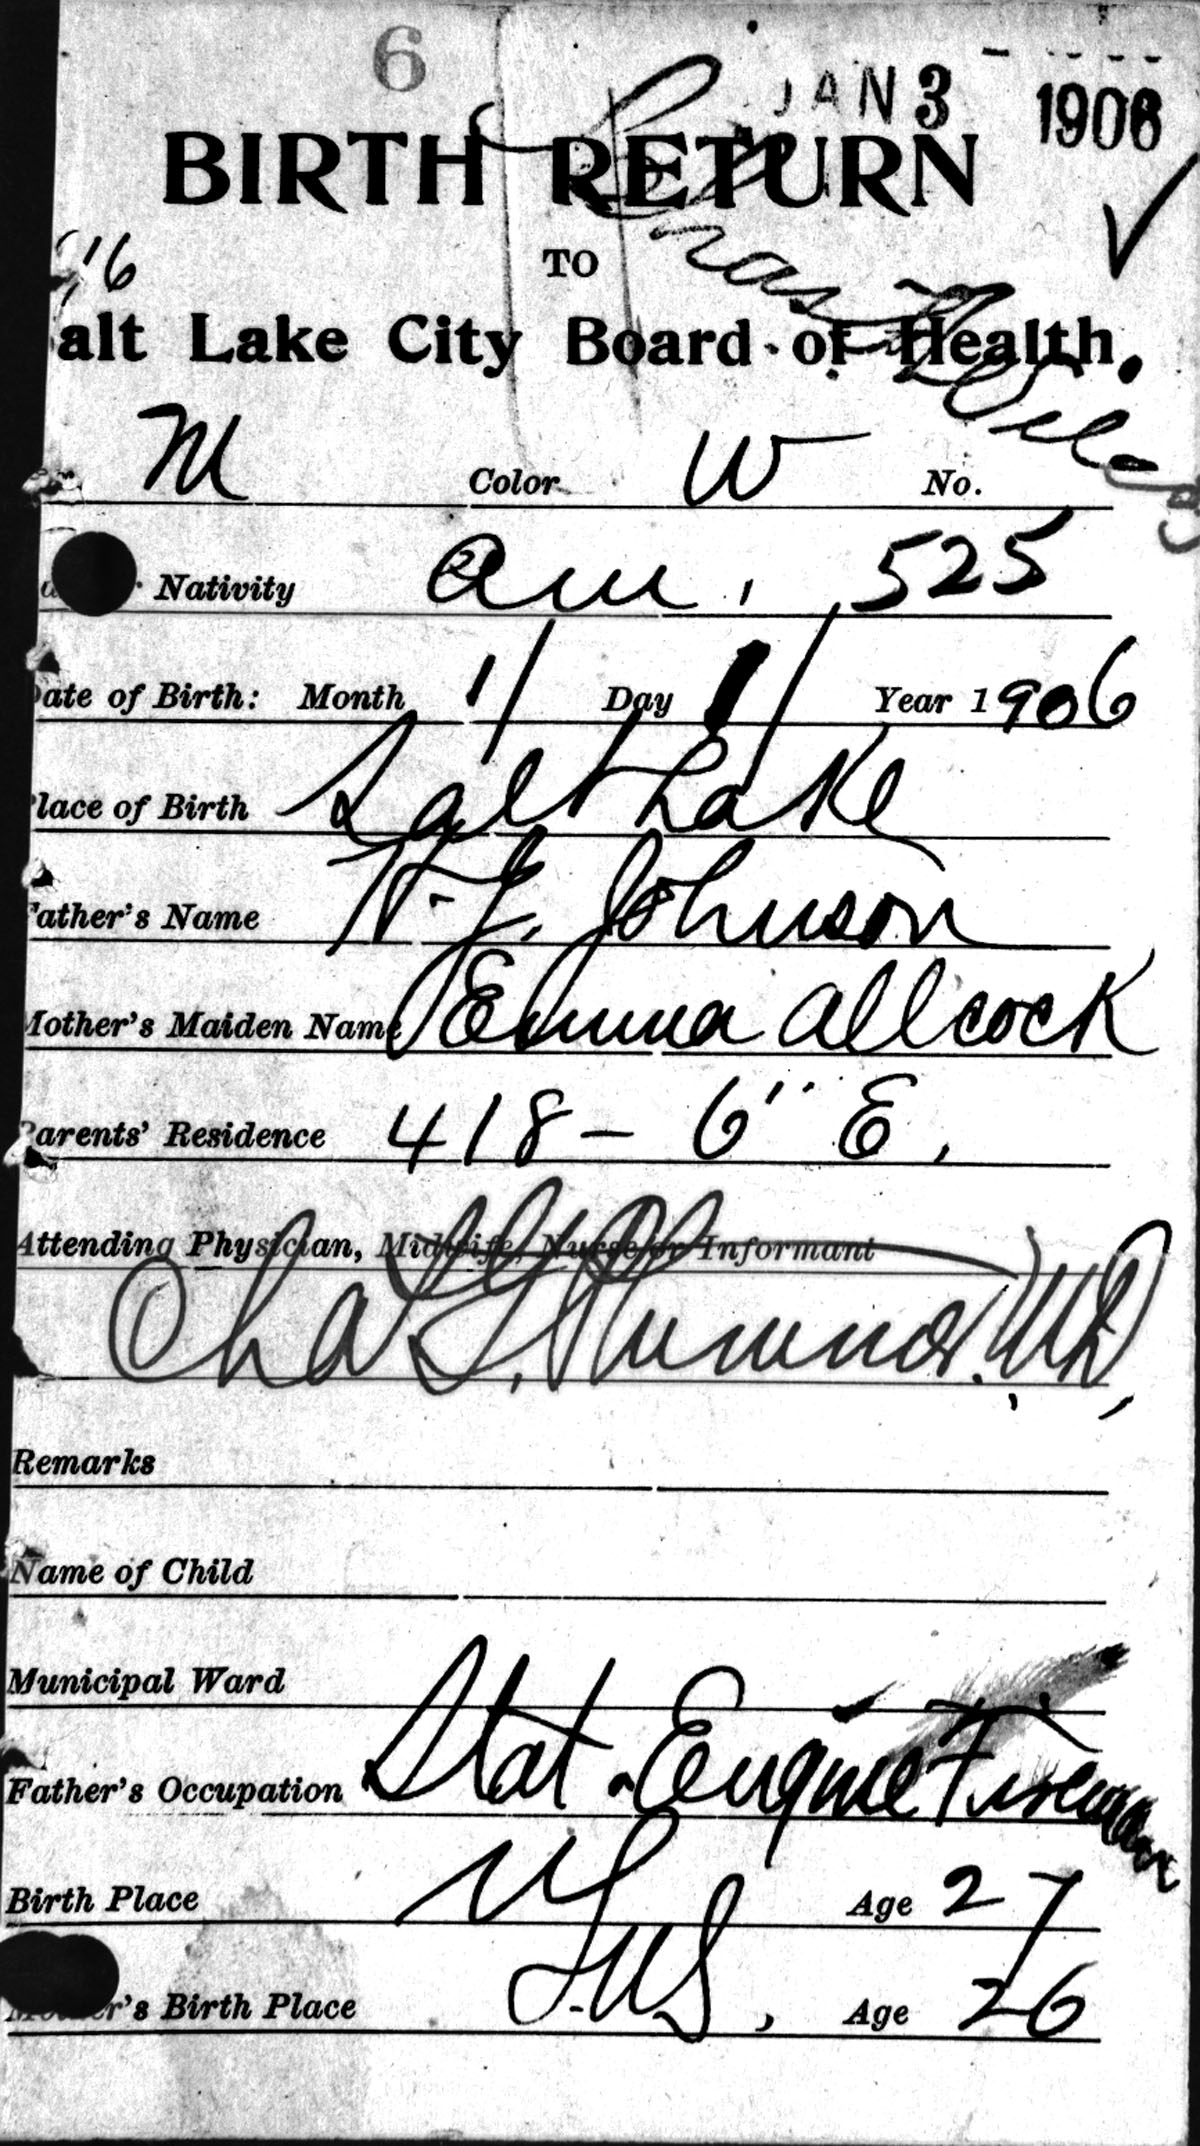 6
JAN 3 1906
BIRTH RETURN
TO
'16
alt Lake City Board of Health.
Chas Wiley
M Color W No.
Nativity Am. 525
Date of Birth: Month 1/ Day 1/ Year 1906
Place of Birth Salt Lake
Father's Name Johnson
Mother's Maiden Name Emma Allcock
Parents' Residence 418 - 6" E.
Attending Physician, Midwife, Nurse or Informant
Chas G. Plummer. MD,
Remarks
Name of Child
Municipal Ward
Father's Occupation Stat. Engine Fireman
Birth Place Age 27
Mother's Birth Place Age 26